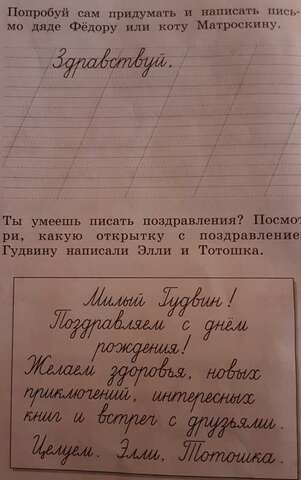 Попробуй сам придумать и написать пись-
мо дяде Фёдору или коту Матроскину.
Здравствуй.
Ты умеешь писать поздравления? Посмот
ри, какую открытку с поздравление
Гудвину написали Элли и Тотошка.
Милый Гудвин!
Поздравляем с днём
рождения!
Желаем здоровья, новых
приключений, интересных
книг и встреч с друзьями.
Целуем. Элли, Тотошка.